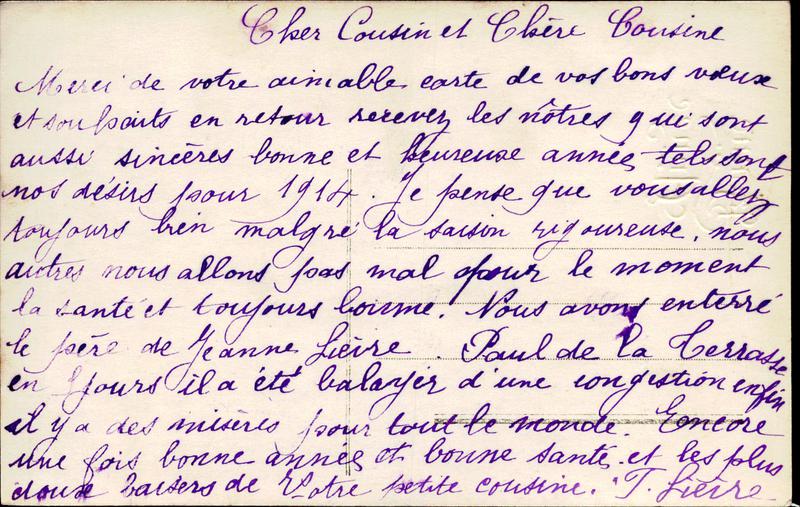 Cher Cousin et Chère Cousine
Merci de votre aimable carte de vos bons vœux
et souhaits en retour recevez les nôtres qui sont
aussi sincères bonne et heureuse année tels sont
nos désirs pour 1914. Je pense que vous allez
toujours bien malgré la saison rigoureuse. nous
autres nous allons pas mal pour le moment
la santé et toujours bonne. Nous avons enterré
le père de Jeanne Lièvre. Paul de la Terrasse
en jours il a été balayer d'une congestion enfin
il y a des misères pour tout le monde. Encore
une fois bonne année et bonne santé et les plus
doux baisers de Votre petite cousine. T. Lièvre